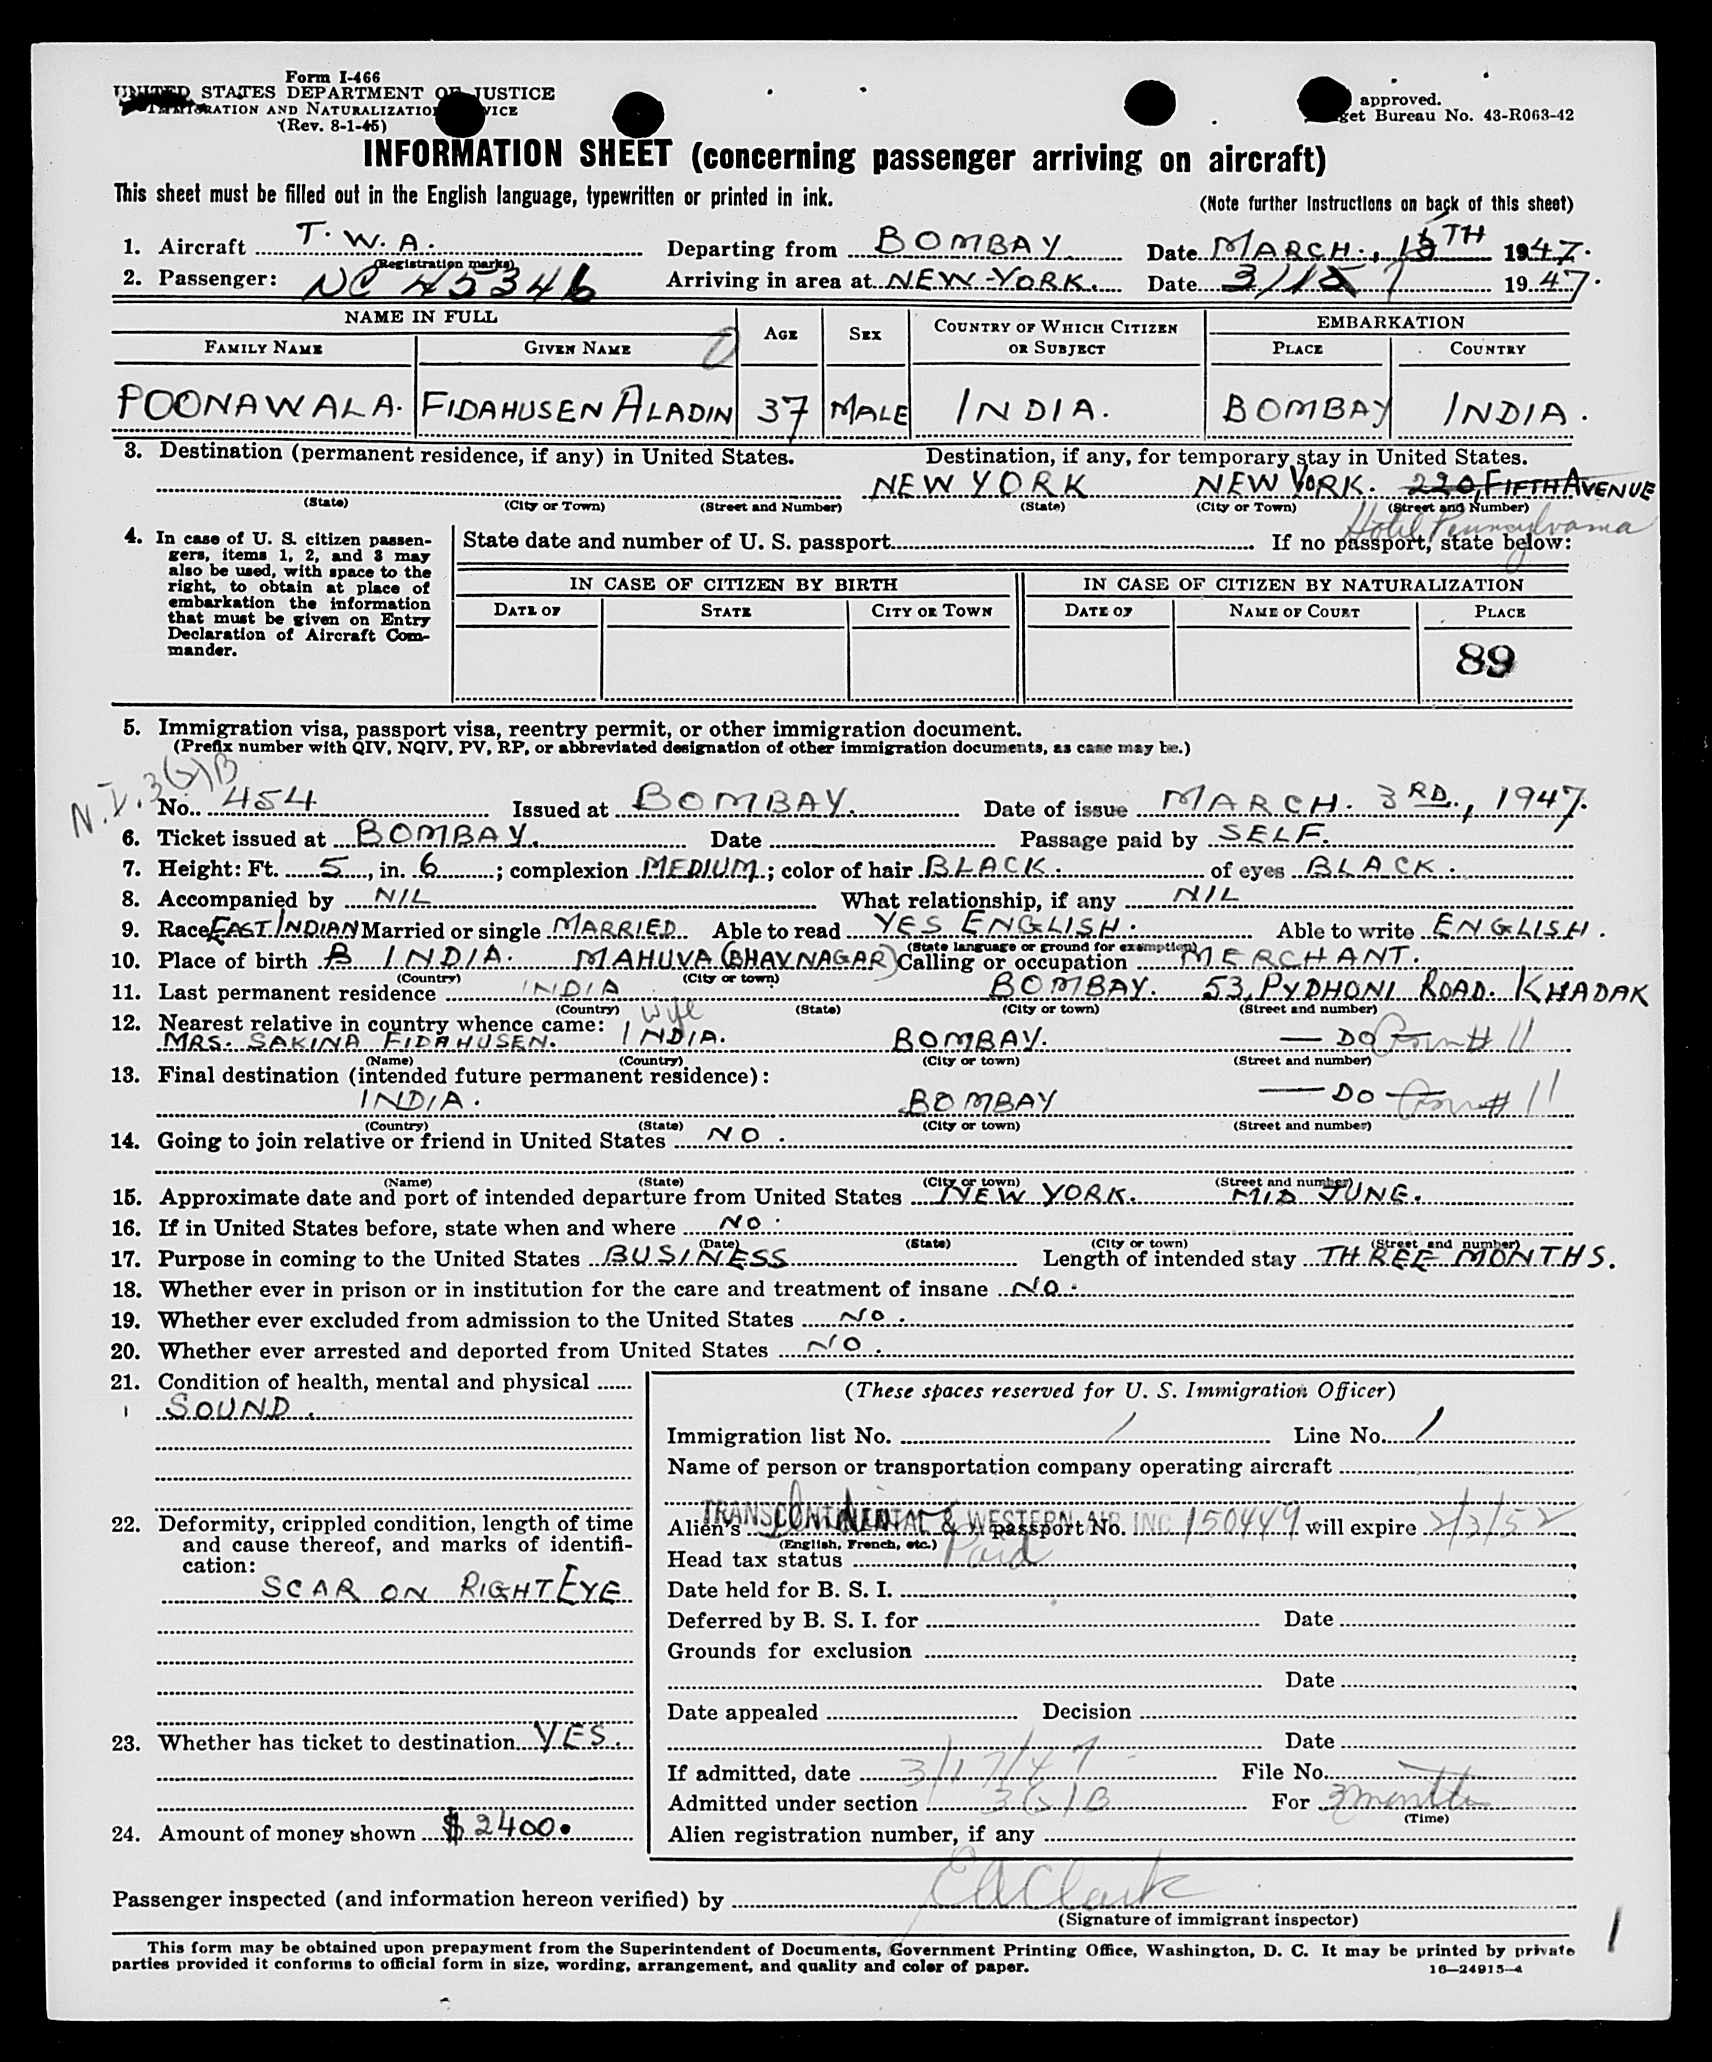 Form I-466
UNITED STATES DEPARTMENT OF JUSTICE
IMMIGRATION AND NATURALIZATION SERVICE
(Rev. 8-1-45)
approved.
get Bureau No. 43-R063-42
INFORMATION SHEET (concerning passenger arriving on aircraft)
This sheet must be filled out in the English language, typewritten or printed in ink.
(Note further instructions on back of this sheet)
1. Aircraft T. W. A. Departing from BOMBAY Date MARCH., 15TH 1947.
(Registration marks)
2. Passenger: NC 45346 Arriving in area at NEW-YORK. Date 3/15 1947.
NAME IN FULL AGE SEX COUNTRY OF WHICH CITIZEN OR SUBJECT EMBARKATION
FAMILY NAME GIVEN NAME PLACE COUNTRY
POONAWALA. FIDAHUSEN ALADIN 37 MALE INDIA. BOMBAY INDIA.
3. Destination (permanent residence, if any) in United States. Destination, if any, for temporary stay in United States.
NEW YORK NEW YORK. 220, FIFTH AVENUE
(State) (City or Town) (Street and Number) (State) (City or Town) (Street and Number)
Hotel Pennsylvania
4. In case of U. S. citizen passen-
gers, items 1, 2, and 3 may
also be used, with space to the
right, to obtain at place of
embarkation the information
that must be given on Entry
Declaration of Aircraft Com-
mander.
State date and number of U. S. passport If no passport, state below:
IN CASE OF CITIZEN BY BIRTH IN CASE OF CITIZEN BY NATURALIZATION
DATE OF STATE CITY OR TOWN DATE OF NAME OF COURT PLACE
89
5. Immigration visa, passport visa, reentry permit, or other immigration document.
(Prefix number with QIV, NQIV, PV, RP, or abbreviated designation of other immigration documents, as case may be.)
N.I. 3(2)B
No. 454 Issued at BOMBAY. Date of issue MARCH. 3RD., 1947.
6. Ticket issued at BOMBAY. Date Passage paid by SELF.
7. Height: Ft. 5, in. 6; complexion MEDIUM; color of hair BLACK. of eyes BLACK.
8. Accompanied by NIL What relationship, if any NIL
9. Race EAST INDIAN Married or single MARRIED Able to read YES ENGLISH. Able to write ENGLISH.
(State language or ground for exemption)
10. Place of birth B INDIA. MAHUVA (BHAVNAGAR) Calling or occupation MERCHANT.
(Country) (City or town)
11. Last permanent residence INDIA BOMBAY. 53, PYDHONI ROAD. KHADAK
(Country) (State) (City or town) (Street and number)
12. Nearest relative in country whence came: wife
MRS. SAKINA FIDAHUSEN. INDIA. BOMBAY. — DO — # 11
(Name) (Country) (City or town) (Street and number)
13. Final destination (intended future permanent residence):
INDIA. BOMBAY — DO — # 11
(Country) (State) (City or town) (Street and number)
14. Going to join relative or friend in United States NO.
(Name) (State) (City or town) (Street and number)
15. Approximate date and port of intended departure from United States NEW YORK. MID JUNE.
16. If in United States before, state when and where NO.
(Date) (State) (City or town) (Street and number)
17. Purpose in coming to the United States BUSINESS Length of intended stay THREE MONTHS.
18. Whether ever in prison or in institution for the care and treatment of insane NO.
19. Whether ever excluded from admission to the United States NO.
20. Whether ever arrested and deported from United States NO.
21. Condition of health, mental and physical
SOUND.
22. Deformity, crippled condition, length of time
and cause thereof, and marks of identifi-
cation:
SCAR ON RIGHT EYE
23. Whether has ticket to destination YES.
24. Amount of money shown $2400.
(These spaces reserved for U. S. Immigration Officer)
Immigration list No. 1 Line No. 1
Name of person or transportation company operating aircraft
TRANSCONTINENTAL & WESTERN AIR INC
Alien's passport No. 150449 will expire 2/3/52
(English, French, etc.)
Head tax status Paid
Date held for B. S. I.
Deferred by B. S. I. for Date
Grounds for exclusion
Date
Date appealed Decision
Date
If admitted, date 3/17/47 File No.
Admitted under section 3(2)B For 3 months
(Time)
Alien registration number, if any
Passenger inspected (and information hereon verified) by E A Clark
(Signature of immigrant inspector)
1
This form may be obtained upon prepayment from the Superintendent of Documents, Government Printing Office, Washington, D. C. It may be printed by private
parties provided it conforms to official form in size, wording, arrangement, and quality and color of paper.
16—24915-4